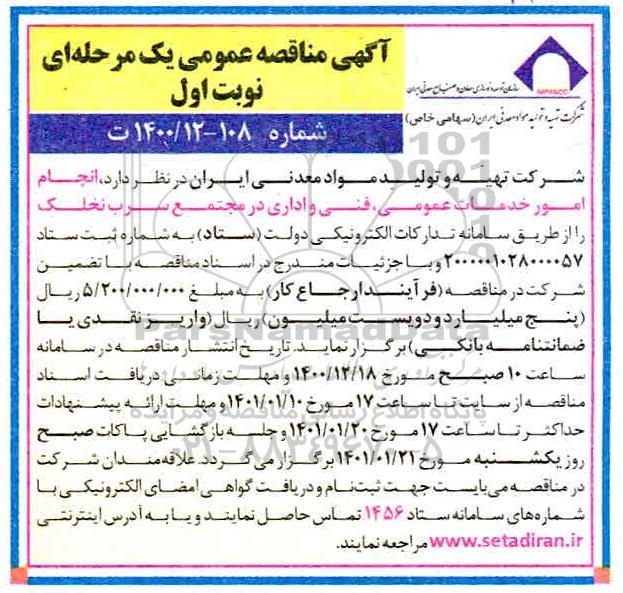 آگهی مناقصه عمومی یک مرحله‌ای
نوبت اول
شماره ۱۰۸-۱۴۰۰/۱۲ ت
IMPASCO
سازمان توسعه و نوسازی معادن و صنایع معدنی ایران
شرکت تهیه و تولید مواد معدنی ایران (سهامی خاص)
شرکت تهیه و تولید مواد معدنی ایران در نظر دارد، انجام
امور خدمات عمومی، فنی و اداری در مجتمع سرب نخلک
را از طریق سامانه تدارکات الکترونیکی دولت (ستاد) به شماره ثبت ستاد
۲۰۰۰۰۰۱۰۲۸۰۰۰۰۵۷ و با جزئیات مندرج در اسناد مناقصه با تضمین
شرکت در مناقصه (فرآیند ارجاع کار) به مبلغ ۵/۲۰۰/۰۰۰/۰۰۰ ریال
(پنج میلیارد و دویست میلیون) ریال (واریز نقدی یا
ضمانتنامه بانکی) برگزار نماید. تاریخ انتشار مناقصه در سامانه
ساعت ۱۰ صبح مورخ ۱۴۰۰/۱۲/۱۸ و مهلت زمانی دریافت اسناد
مناقصه از سایت تا ساعت ۱۷ مورخ ۱۴۰۱/۰۱/۱۰ و مهلت ارائه پیشنهادات
حداکثر تا ساعت ۱۷ مورخ ۱۴۰۱/۰۱/۲۰ و جلسه بازگشایی پاکات صبح
روز یکشنبه مورخ ۱۴۰۱/۰۱/۲۱ برگزار می‌گردد. علاقه‌مندان شرکت
در مناقصه می‌بایست جهت ثبت‌نام و دریافت گواهی امضای الکترونیکی با
شماره‌های سامانه ستاد ۱۴۵۶ تماس حاصل نمایند و یا به آدرس اینترنتی
www.setadiran.ir مراجعه نمایند.
ParsNamadData
پایگاه اطلاع رسانی مناقصه و مزایده